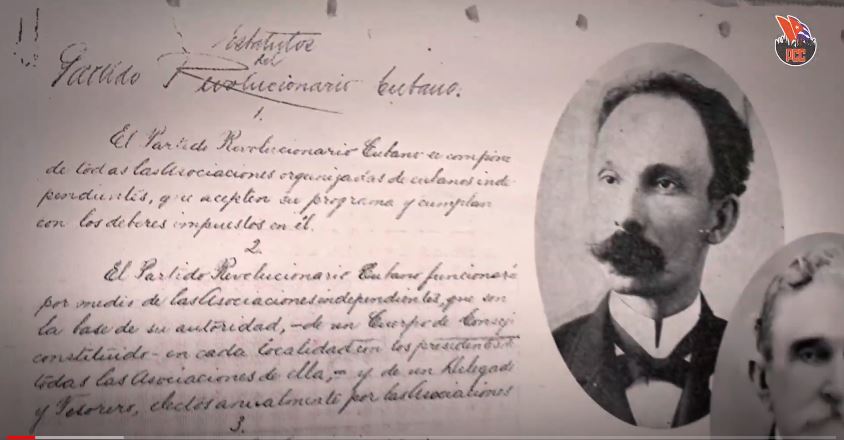 Estatutos
del
Partido Revolucionario Cubano.
1.
El Partido Revolucionario Cubano se compone
de todas las Asociaciones organizadas de cubanos inde-
pendientes, que acepten su programa y cumplan
con los deberes impuestos en él.
2.
El Partido Revolucionario Cubano funcionará
por medio de las Asociaciones independientes, que son
la base de su autoridad, - de un Cuerpo de Consejo
constituido en cada localidad con los presidentes de
todas las Asociaciones de ella, - y de un Delegado
y Tesorero, electos anualmente por las Asociaciones
3.
PCC